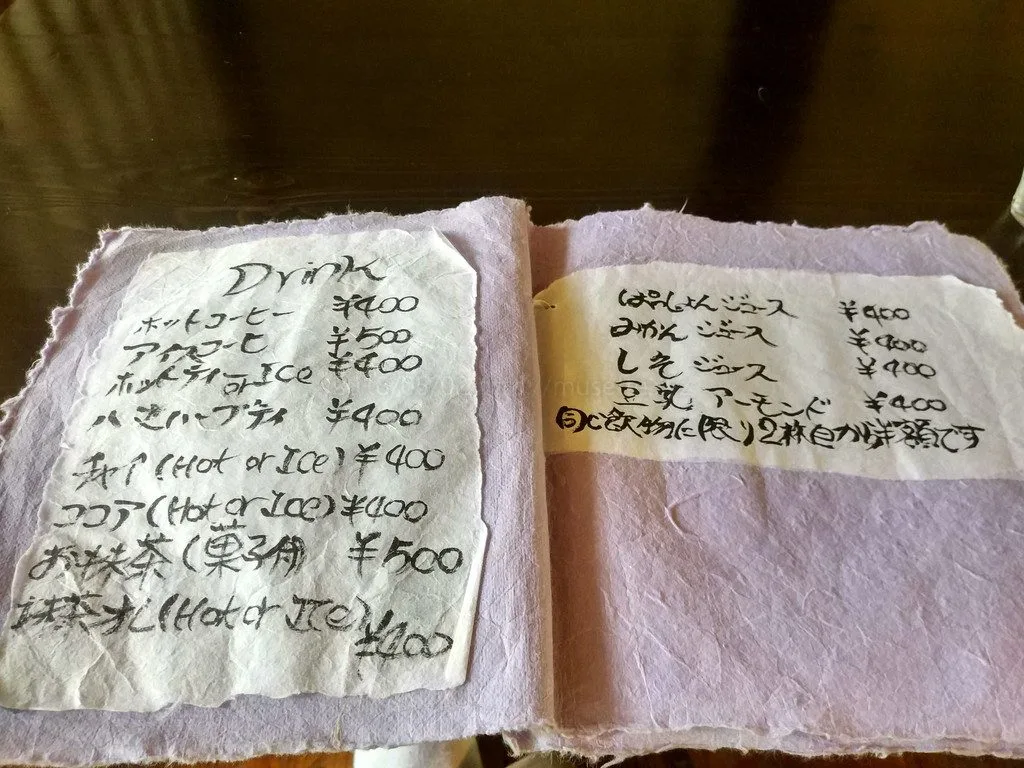 Drink
ホットコーヒー ¥400
アイスコーヒ ¥500
ホットティー or Ice ¥400
ハーブティ ¥400
チャイ(Hot or Ice) ¥400
ココア(Hot or Ice) ¥400
お抹茶(菓子付 ¥500
抹茶オレ(Hot or Ice)
¥400
ぱっしょんジュース ¥400
みかんジュース ¥400
しそジュース ¥400
豆乳アーモンド ¥400
同じ飲物に限り2杯目から半額です